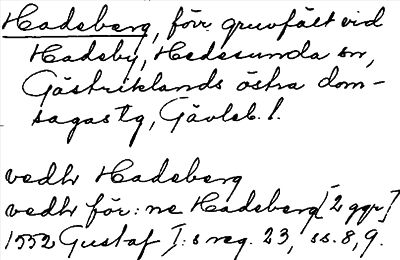 Hadeberg, förr gruvfält vid
Hadeby, Hedesunda sn,
Gästriklands östra dom-
sagas tg, Gävleb. l.
vedh Hadeberg
vedh för:ne Hadeberg [2 ggr]
1552 Gustaf I:s reg. 23, ss. 8, 9.